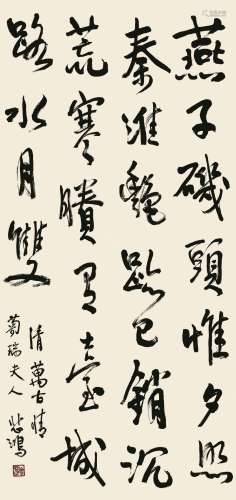 燕子磯頭惟夕照
秦淮艷跡已銷沉
荒寒賸有臺城
路水月雙
清萬古情
瑞夫人 悲鴻